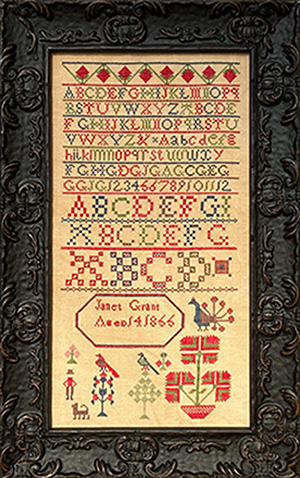 ABCDEFGHIJKLMNOPQ
RSTUVWXYZ ABCDE
FGHIJKLMNOPQRSTUV
VWXYZ Aabcdefg
hijklmnopqrstuvwxy
FGHGDGJGAGCGEG
GGJG12346678910112
ABCDEFGI
ABCDEFG
Janet Grant
Aged 14 1866